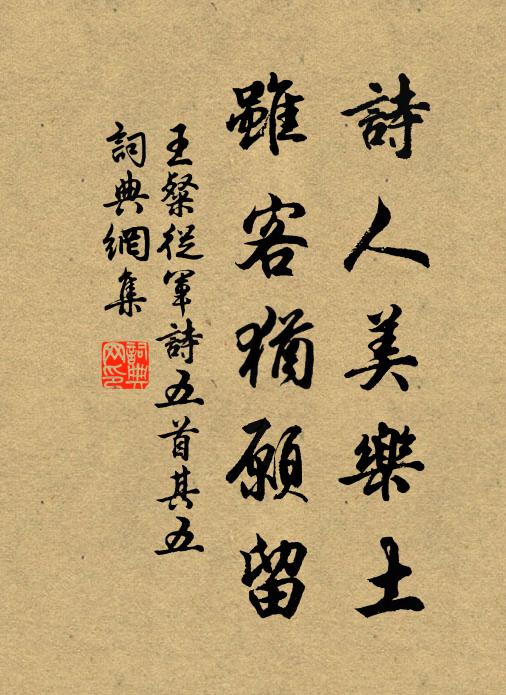 詩人美樂土
雖客猶願留
王粲從軍詩五首其五
詞典網集
詞典網印